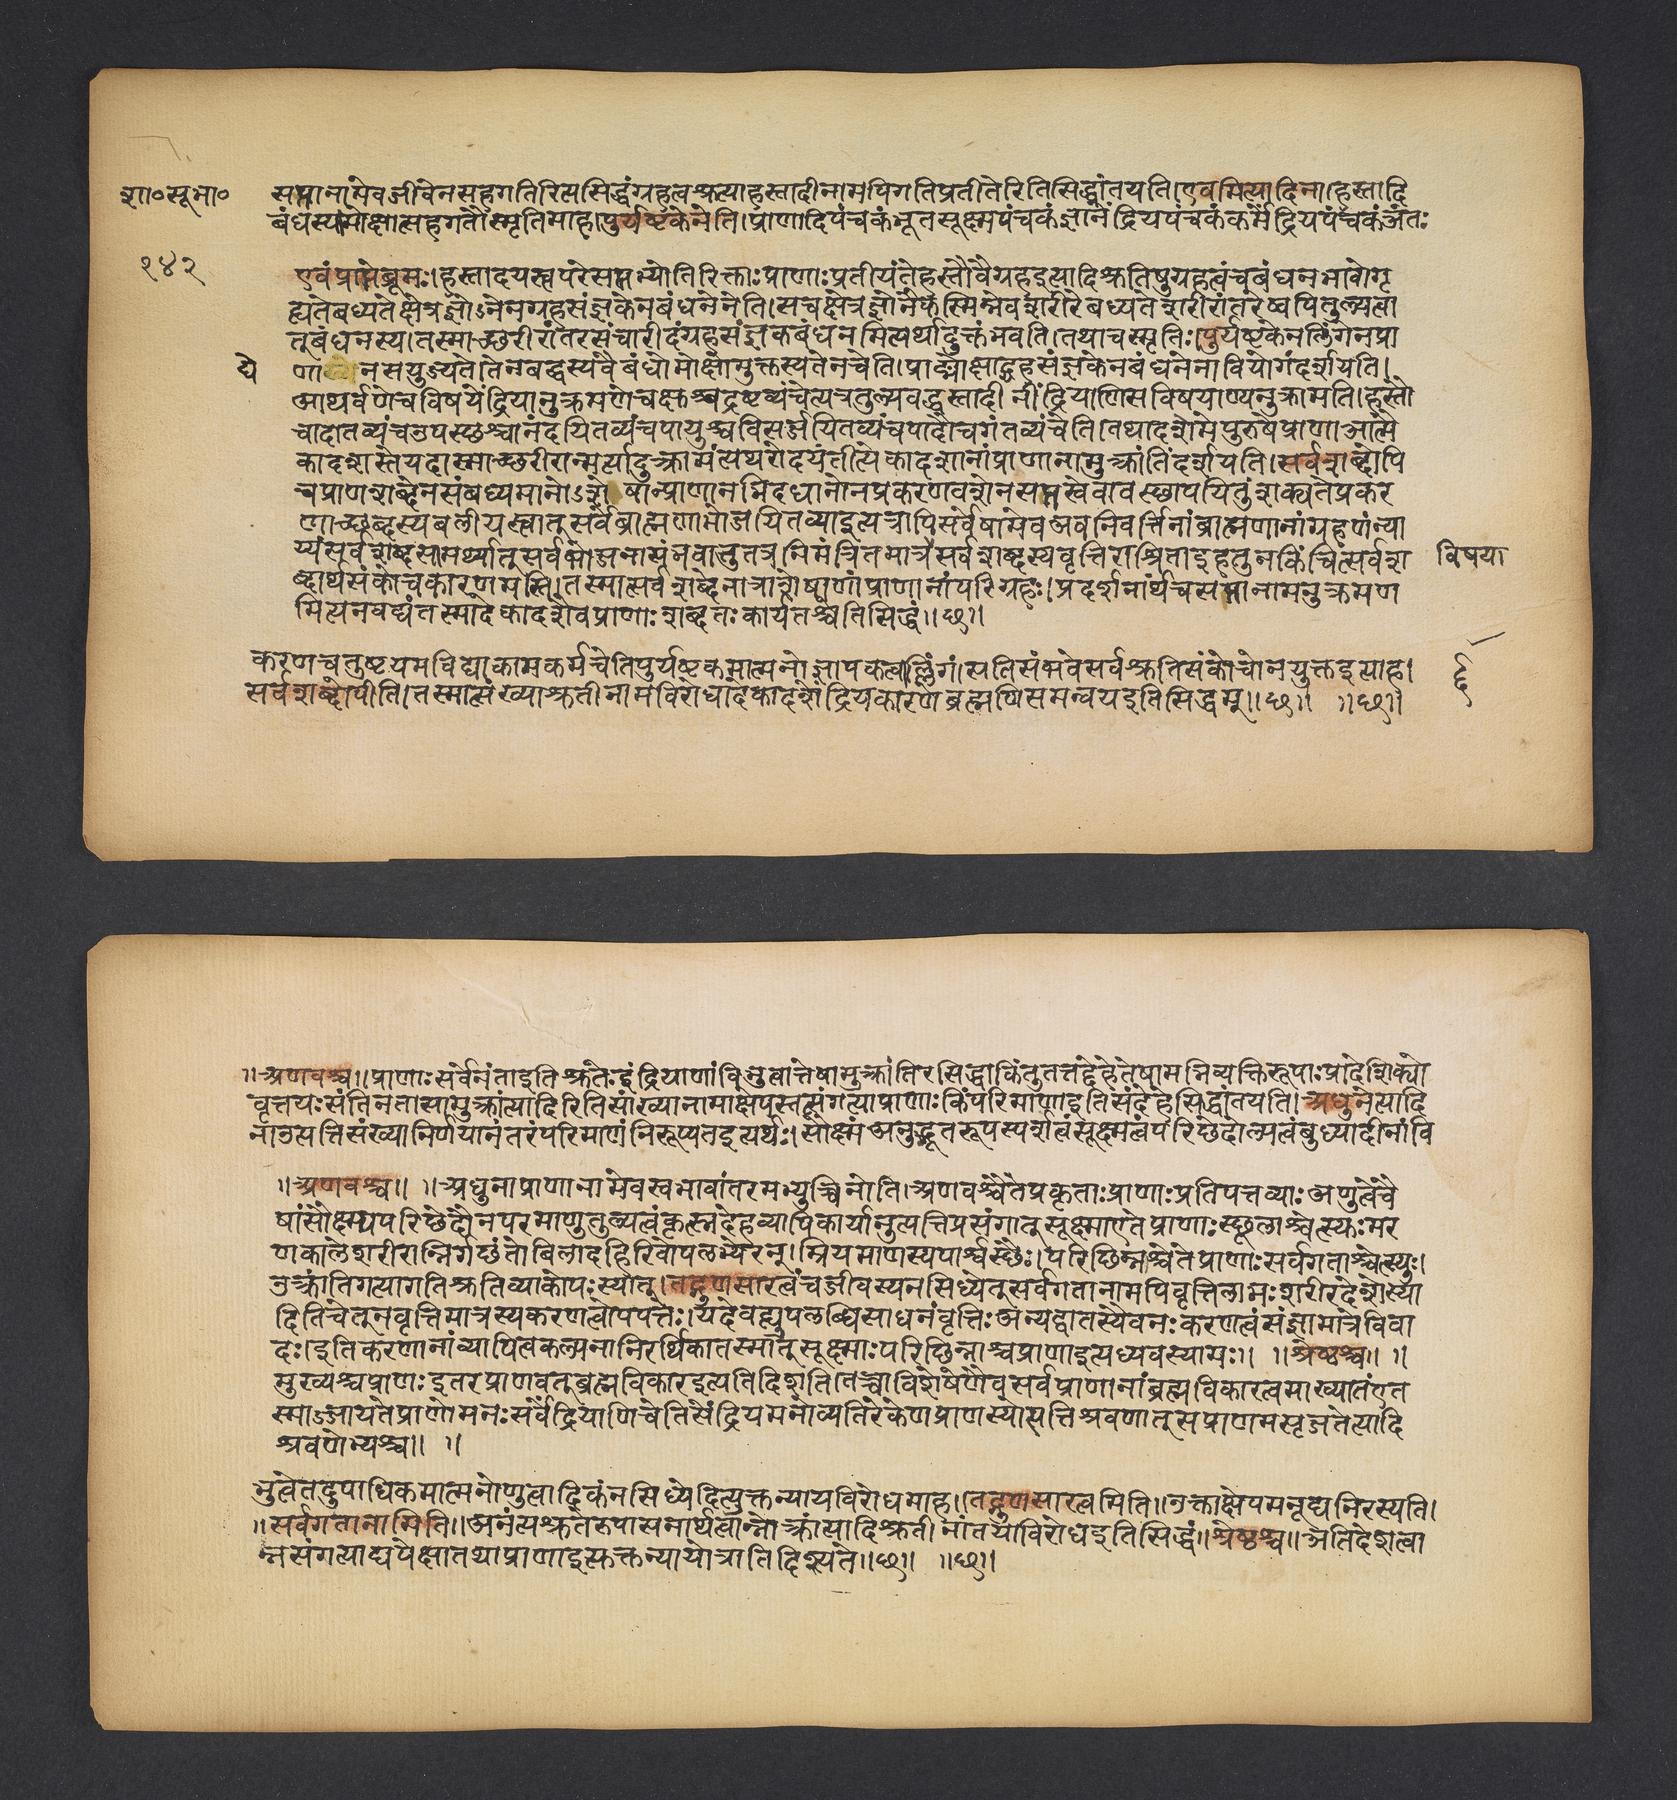 शा०सूभा०
१४२
सप्तानामेवजीवेनसहगतिरित्यसिद्धंग्रहत्वश्रुत्याहस्तादीनामपिगतिप्रतीतेरितिसिद्धांतयति।एवमित्यादिना।हस्तादि
बंधस्यमोक्षात्सहगतौस्मृतिमाह।पुर्यष्टकेनेति।प्राणादिपंचकंभूतसूक्ष्मपंचकंज्ञानेंद्रियपंचकंकर्मेंद्रियपंचकंअंतः
एवंप्राप्तेब्रूमः।हस्तादयस्त्वपरेसप्तभ्योतिरिक्ताःप्राणाःप्रतीयंतेहस्तौवैग्रहइत्यादिश्रुतिषुग्रहत्वंचबंधनभावोगृ
ह्यतेबध्यतेक्षेत्रज्ञोऽनेनग्रहसंज्ञकेनबंधनेनेति।सचक्षेत्रज्ञोनैकस्मिन्नेवशरीरेबध्यतेशरीरांतरेष्वपितुल्यत्वा
त्तुबंधनस्य।तस्माच्छरीरांतरसंचारीदंग्रहसंज्ञकबंधनमित्यर्थादुक्तंभवति।तथाचस्मृतिः।पुर्यष्टकेनलिंगेनप्रा
द्ये
णा नसयुज्यते।तेनबद्धस्यवैबंधोमोक्षोमुक्तस्यतेनचेति।प्राङ्मोक्षाद्ग्रहसंज्ञकेनबंधनेनावियोगंदर्शयति।
आथर्वणेचविषयेंद्रियानुक्रमणेचक्षुश्चद्रष्टव्यंचेत्यत्रतुल्यवद्धस्तादीनींद्रियाणिसविषयाण्यनुक्रामति।हस्तौ
चादातव्यंचउपस्छश्चानंदयितव्यंचपायुश्चविसर्जयितव्यंचपादौचगंतव्यंचेति।तथादशेमेपुरुषेप्राणाआत्मै
कादशस्तेयदास्माच्छरीरान्मर्त्यादुत्क्रामंत्यथरोदयंतीत्येकादशानांप्राणानामुत्क्रांतिंदर्शयति।सर्वशब्दोपि
चप्राणशब्देनसंबध्यमानोऽशे षान्प्राणानभिदधानोनप्रकरणवशेनसप्तस्वेवावस्छापयितुंशक्यतेप्रकर
णाच्छब्दस्यबलीयस्त्वात्सर्वेब्राह्मणाभोजयितव्याइत्यत्रापिसर्वेषामेवअवनिवर्त्तिनांब्राह्मणानांग्रहणंन्या
य्यंसर्वशब्दसामर्थ्यात्सर्वभोजनासंभवात्तुतत्रनिमंत्रितमात्रसर्वशब्दस्यवृत्तिराश्रिताइहतुनकिंचित्सर्वश
विषया
ब्दार्थसंकोचकारणमस्ति।तस्मात्सर्वशब्देनात्राशेषाणांप्राणानांपरिग्रहः।प्रदर्शनार्थंचसप्तानामनुक्रमण
मित्यनवद्यंतस्मादेकादशैवप्राणाःशब्दतःकार्यतश्चेतिसिद्धं॥छ॥
करणचतुष्टयमविद्याकामकर्मचेतिपुर्यष्टकमात्मनोज्ञापकत्वाल्लिंगं।सतिसंभवेसर्वश्रुतिसंकोचोनयुक्तइत्याह।
सर्वशब्दोपीति।तस्मात्संख्याश्रुतीनामविरोधादेकादशेंद्रियकारणेब्रह्मणिसमन्वयइतिसिद्धम्॥छ॥ ॥छ॥
॥अणवश्च॥प्राणाःसर्वेनंताइतिश्रुतेःइंद्रियाणांविभुत्वात्तेषामुत्क्रांतिरसिद्धाकिंतुतत्तद्देहेतेषामभिव्यक्तिरूपाःप्रादेशिक्यो
वृत्तयःसंतिनतासामुत्क्रांत्यादिरितिसांख्यानामाक्षेपस्तत्संगत्याप्राणाःकिंपरिमाणाइतिसंदेहेसिद्धांतयति।अधुनेत्यादि
नाउत्पत्तिसंख्यानिर्णयानंतरंपरिमाणंनिरूप्यतइत्यर्थः।सौक्ष्म्यंअनुद्भूतरूपस्पर्शत्वंसूक्ष्मत्वंपरिछेदोल्पत्वंबुध्यादीनांवि
॥अणवश्च॥ ॥अधुनाप्राणानामेवस्वभावांतरमभ्युच्चिनोति।अणवश्चैतेप्रकृताःप्राणाःप्रतिपत्तव्याःअणुत्वंचै
षांसौक्ष्म्यपरिछेदौनपरमाणुतुल्यत्वंकृत्स्नदेहव्यापिकार्यानुत्पत्तिप्रसंगात्सूक्ष्माएतेप्राणाःस्छूलाश्चेत्स्युःमर
णकालेशरीरान्निर्गछंतोबिलादहिरिवोपलभ्येरन्।म्रियमाणस्यपार्श्वस्छैः।परिछिन्नाश्चैतेप्राणाःसर्वगताश्चेत्स्युः।
उत्क्रांतिगत्यागतिश्रुतिव्याकोपःस्यात्।तद्गुणसारत्वंचजीवस्यनसिध्येत्सर्वगतानामपिवृत्तिलाभःशरीरदेशेस्या
दितिचेत्नवृत्तिमात्रस्यकरणत्वोपपत्तेः।यदेवह्युपलब्धिसाधनंवृत्तिःअन्यद्वातस्यैवनःकरणत्वंसंज्ञामात्रेविवा
दः।इतिकरणानांव्यापित्वकल्पनानिरर्थिकातस्मात्सूक्ष्माःपरिछिन्नाश्चप्राणाइत्यध्यवस्यामः॥ ॥श्रेष्ठश्च॥ ॥
मुख्यश्चप्राणःइतरप्राणवत्ब्रह्मविकारइत्यतिदिशति।तच्चाविशेषेणैवसर्वप्राणानांब्रह्मविकारत्वमाख्यातंएत
स्माज्जायतेप्राणोमनःसर्वेंद्रियाणिचेतिसेंद्रियमनोव्यतिरेकेणप्राणस्योत्पत्तिश्रवणात्सप्राणमसृजतेत्यादि
श्रवणेभ्यश्च॥ ॥
भुत्वेतदुपाधिकमात्मनोणुत्वादिकंनसिध्येदित्युक्तन्यायविरोधमाह।तद्गुणसारत्वमिति॥उक्ताक्षेपमनूद्यनिरस्यति।
॥सर्वगतानामिति॥अनंत्यश्रुतेरुपासनार्थत्वान्नोत्क्रांत्यादिश्रुतीनांतयाविरोधइतिसिद्धं॥श्रेष्ठश्च॥अतिदेशत्वा
न्नसंगत्याद्यपेक्षातथाप्राणाइत्युक्तन्यायोत्रातिदिश्यते॥छ॥ ॥छ॥